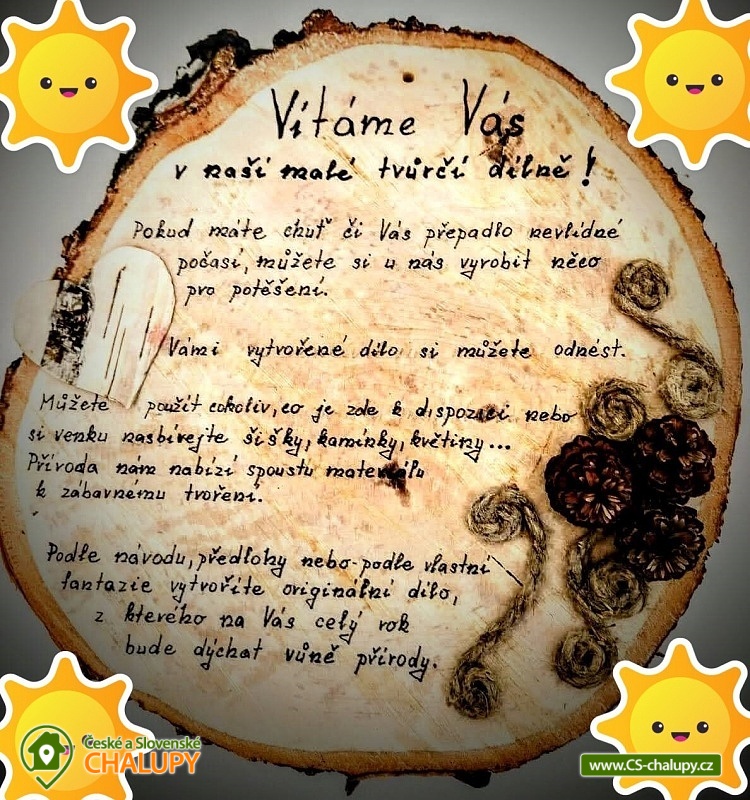 Vítáme Vás
v naší malé tvůrčí dílně!
Pokud máte chuť či Vás přepadlo nevlídné
počasí, můžete si u nás vyrobit něco
pro potěšení.
Vámi vytvořené dílo si můžete odnést.
Můžete použít cokoliv, co je zde k dispozici nebo
si venku nasbírejte šišky, kamínky, květiny...
Příroda nám nabízí spoustu materiálu
k zábavnému tvoření.
Podle návodu, předlohy nebo podle vlastní
fantazie vytvoříte originální dílo,
z kterého na Vás celý rok
bude dýchat vůně přírody.
České a Slovenské
CHALUPY
www.CS-chalupy.cz